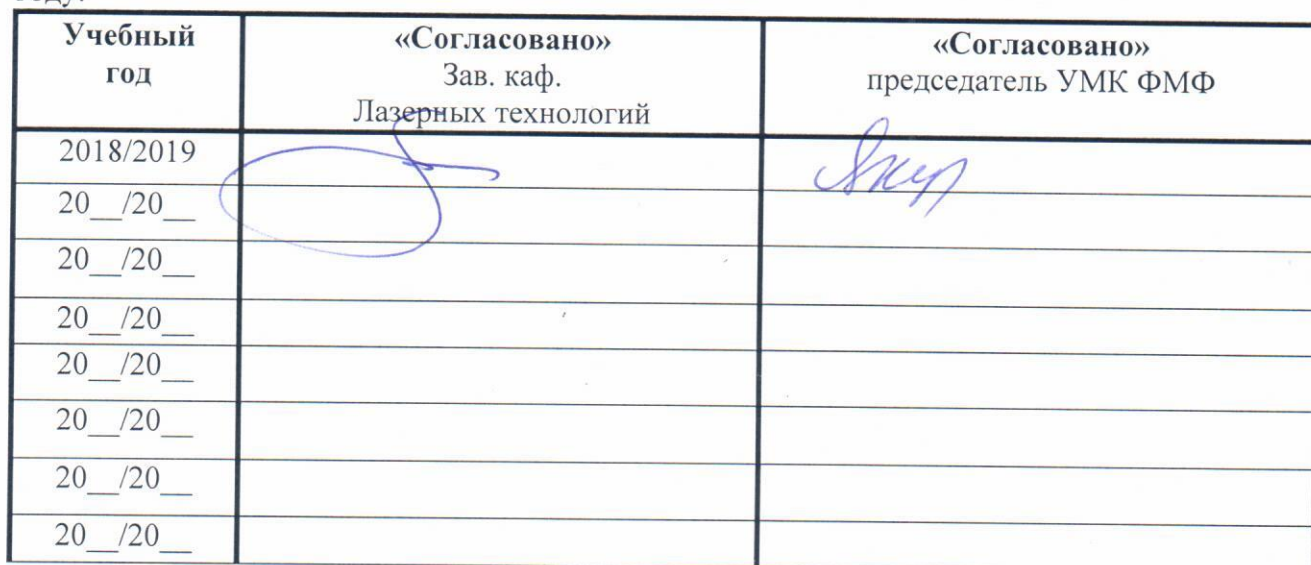 Учебный год
«Согласовано»
Зав. каф.
Лазерных технологий
«Согласовано»
председатель УМК ФМФ
2018/2019
20__/20__
20__/20__
20__/20__
20__/20__
20__/20__
20__/20__
20__/20__